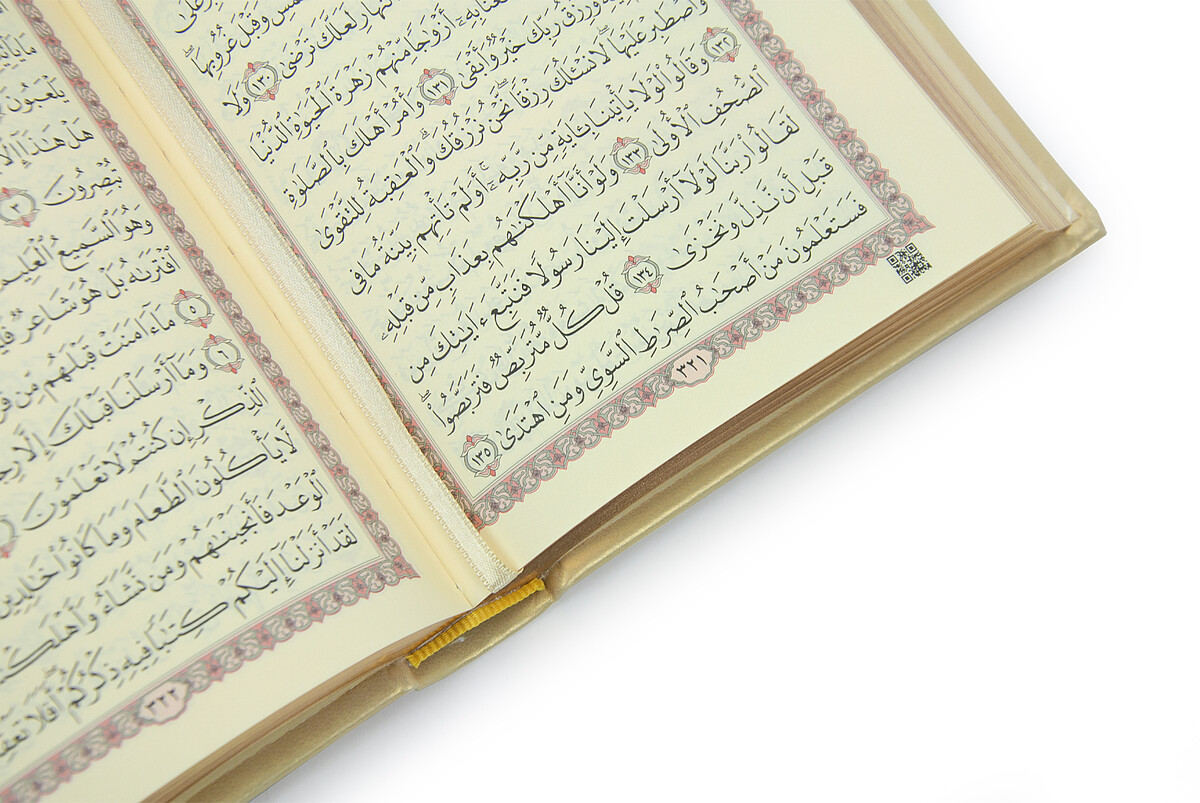 وَقَبْلَ غُرُوبِهَاۖ
ٱلنَّهَارِ لَعَلَّكَ تَرْضَىٰ ١٣٠ وَلَا
بِهِۦٓ أَزْوَٰجًا مِّنْهُمْ زَهْرَةَ ٱلْحَيَوٰةِ ٱلدُّنْيَا
وَرِزْقُ رَبِّكَ خَيْرٌ وَأَبْقَىٰ ١٣١ وَأْمُرْ أَهْلَكَ بِٱلصَّلَوٰةِ
وَٱصْطَبِرْ عَلَيْهَاۖ لَا نَسْـَٔلُكَ رِزْقًاۖ نَّحْنُ نَرْزُقُكَۗ وَٱلْعَٰقِبَةُ لِلتَّقْوَىٰ
١٣٢ وَقَالُوا۟ لَوْلَا يَأْتِينَا بِـَٔايَةٍ مِّن رَّبِّهِۦٓۚ أَوَلَمْ تَأْتِهِم بَيِّنَةُ مَا فِى
ٱلصُّحُفِ ٱلْأُولَىٰ ١٣٣ وَلَوْ أَنَّآ أَهْلَكْنَٰهُم بِعَذَابٍ مِّن قَبْلِهِۦ
لَقَالُوا۟ رَبَّنَا لَوْلَآ أَرْسَلْتَ إِلَيْنَا رَسُولًا فَنَتَّبِعَ ءَايَٰتِكَ مِن
قَبْلِ أَن نَّذِلَّ وَنَخْزَىٰ ١٣٤ قُلْ كُلٌّ مُّتَرَبِّصٌ فَتَرَبَّصُوا۟ۖ
فَسَتَعْلَمُونَ مَنْ أَصْحَٰبُ ٱلصِّرَٰطِ ٱلسَّوِىِّ وَمَنِ ٱهْتَدَىٰ ١٣٥
٣٢١
يَلْعَبُونَ
هَلْ هَٰذَآ إِلَّا
تُبْصِرُونَ ٣
وَهُوَ ٱلسَّمِيعُ ٱلْعَلِيمُ
ٱفْتَرَىٰهُ بَلْ هُوَ شَاعِرٌ
٥ مَآ ءَامَنَتْ قَبْلَهُم مِّن
٦ وَمَآ أَرْسَلْنَا قَبْلَكَ إِلَّا
ٱلذِّكْرِ إِن كُنتُمْ لَا تَعْلَمُونَ
لَّا يَأْكُلُونَ ٱلطَّعَامَ وَمَا كَانُوا۟ خَٰلِدِينَ
ٱلْوَعْدَ فَأَنجَيْنَٰهُمْ وَمَن نَّشَآءُ
لَقَدْ أَنزَلْنَآ إِلَيْكُمْ كِتَٰبًا فِيهِ ذِكْرُكُمْۖ أَفَلَا
٣٢٢